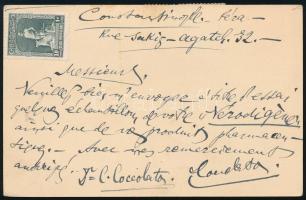 Constantinople. Péra –
Rue Sakiz – agatch 32. –
Messieurs,
Veuillez bien m'envoyer à titre d'essai
quelques échantillons de votre « Nérodigène »
ainsi que de vos produits pharmaceu-
tiques. – Avec mes remerciements
anticipés
Dr C. Coccolatos